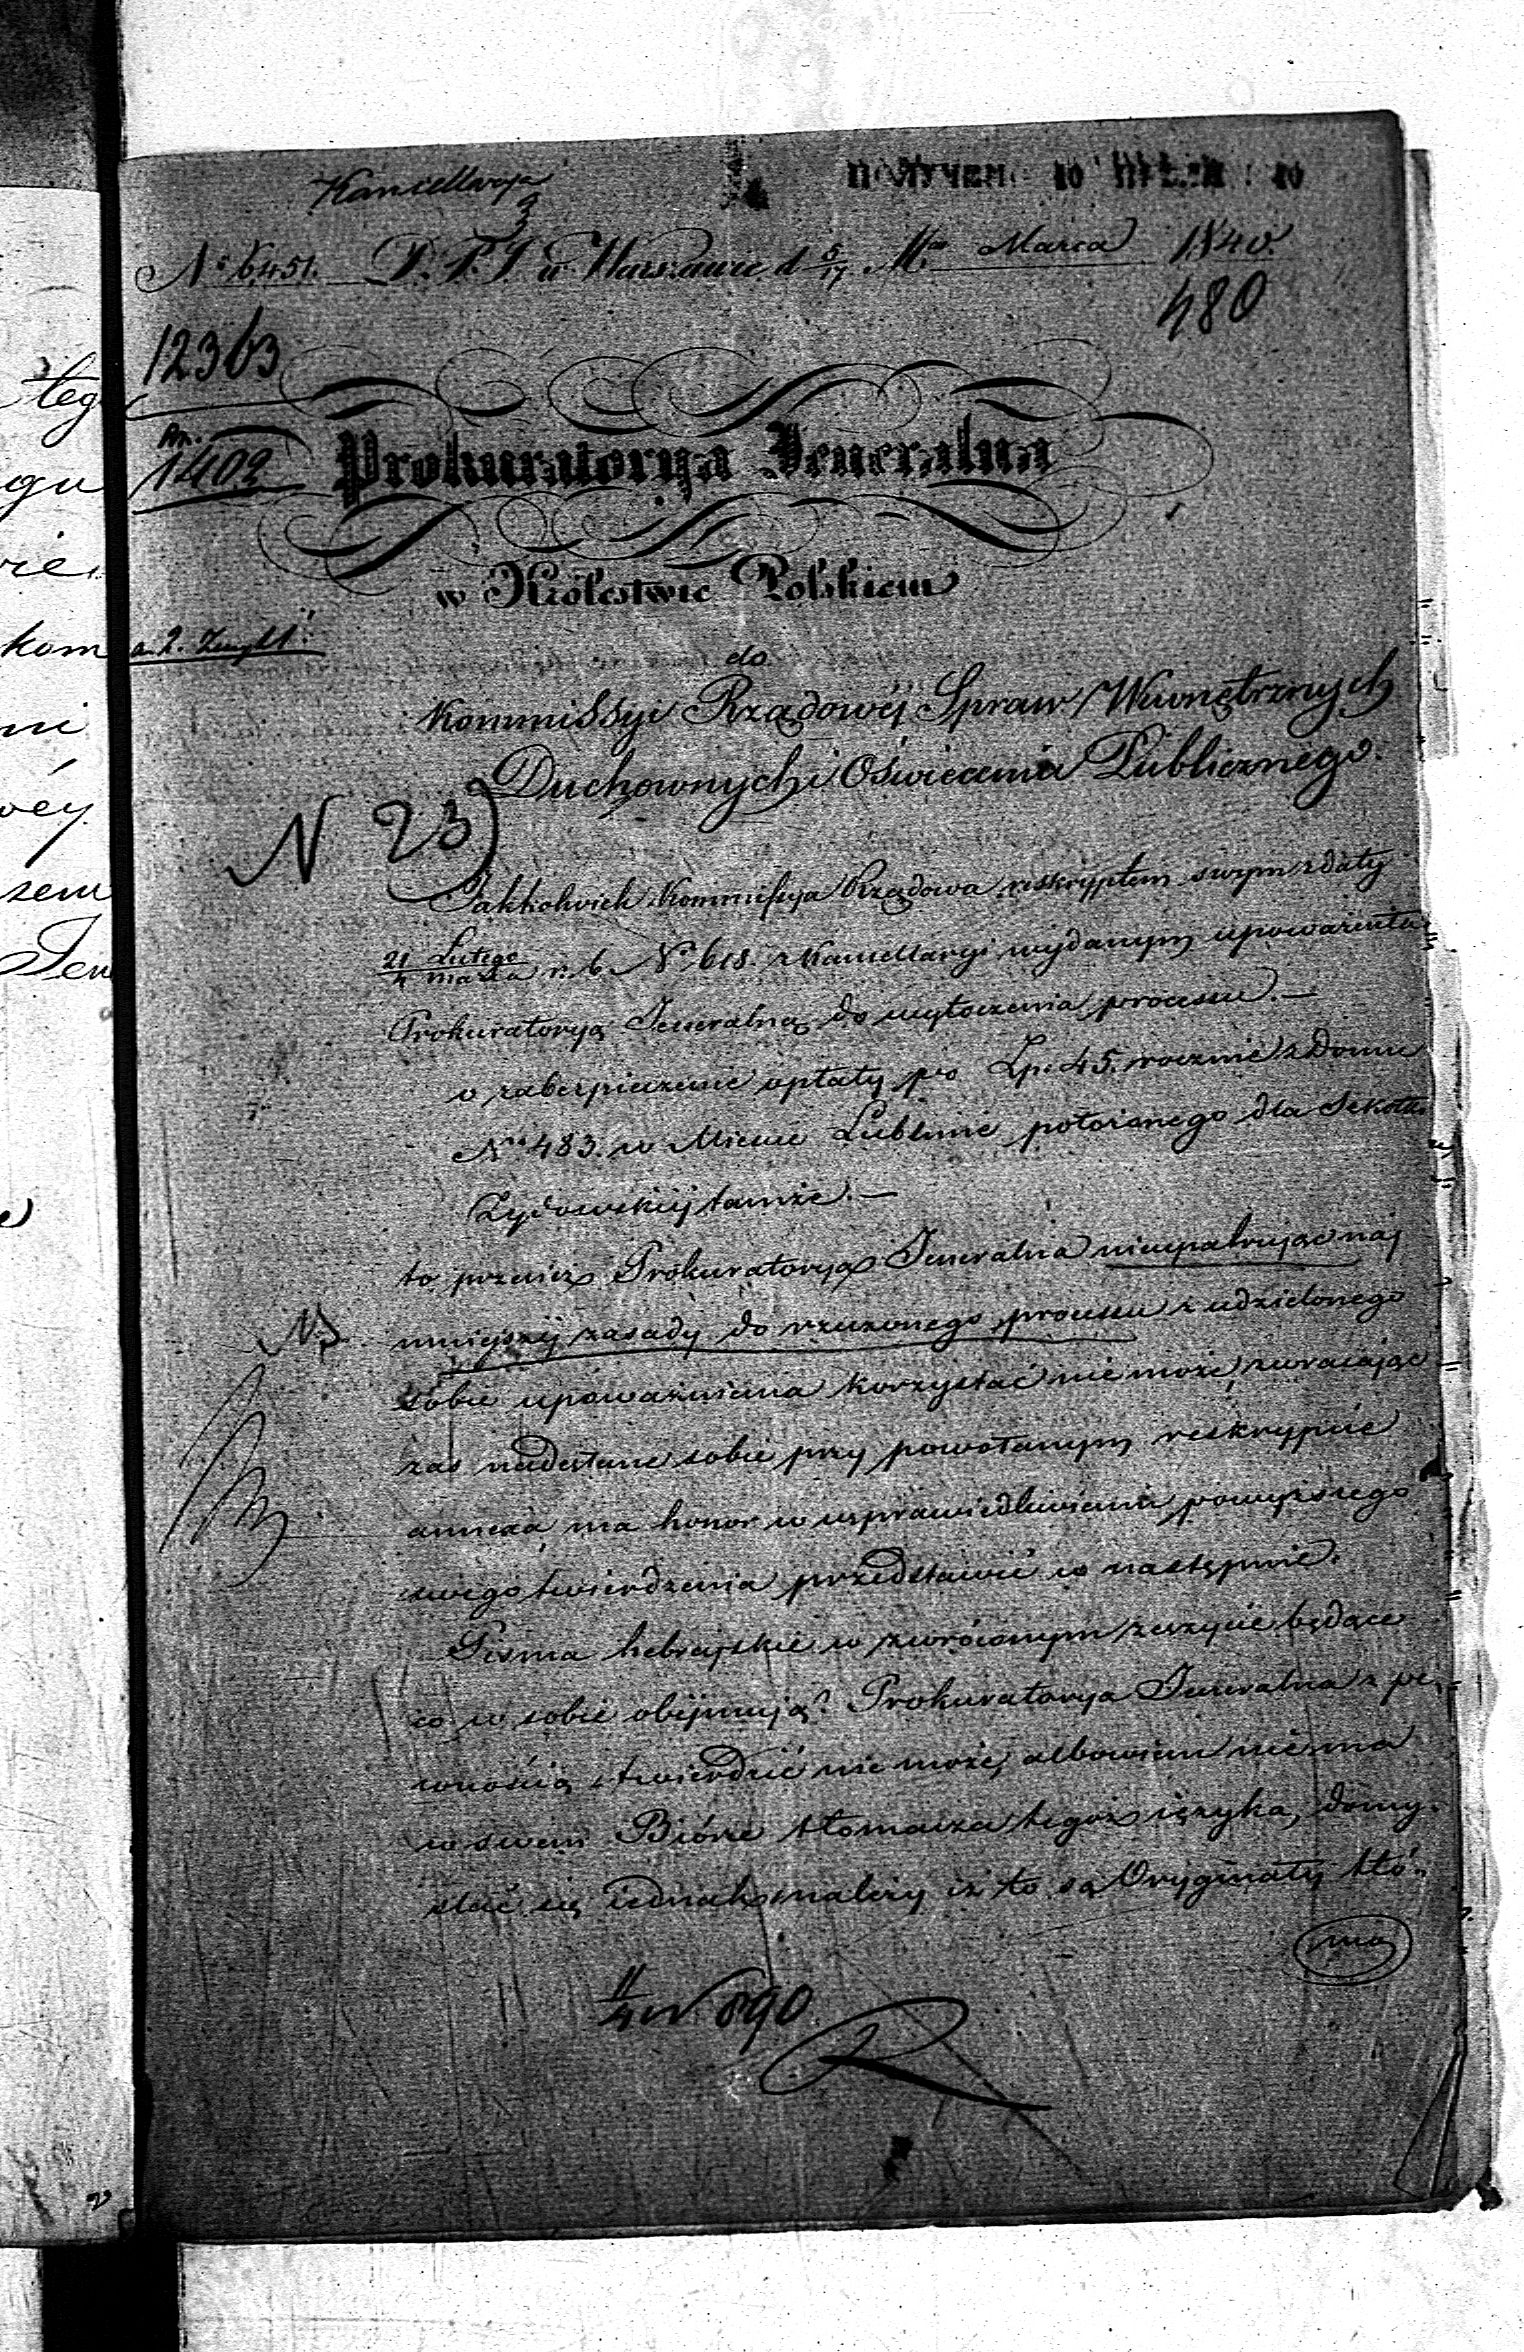 Kancellarya
ПОЛУЧЕНО 10
No 6451. D.P.J. w Warszawie d. 5/17 M.ca Marca 1840.
480
12363
An.
1402
Prokuratorya Jeneralna
w Królestwie Polskiem
do
Kommissyi Rządowéj Spraw Wewnętrznych
Duchownych i Oświecenia Publicznego.
N 23
Jakkolwiek Kommissya Rządowa reskryptem swym z daty
21 Lutego / 4 marca r. b. No 618. z Kancellaryi wydanym upoważniła
Prokuratoryą Jeneralną do wytoczenia processu.—
o zabezpieczenie opłaty po Zp. 45. rocznie z Domu
No 483. w Mieście Lublinie położonego dla Szkółki
Żydowskiéj tamże.—
to przecież Prokuratorya Jeneralna nieupatrując naj
mnieyszéj zasady do rzeczonego processu z udzielonego
sobie upoważnienia korzystać nie może, zwracając
zaś nadesłane sobie przy powołanym reskrypcie
annexa ma honor w usprawiedliwieniu powyższego
swego twierdzenia przedstawić co następuie.
Pisma hebrajskie w zwróconym zeszycie będące
co w sobie obéjmują? Prokuratorya Jeneralna z pe-
wnością stwierdzić nie może, albowiem niema
w swem Biórze tłomacza tegoż ięzyka, domy-
slać się iednak należy iż to są Oryginały tłó-
ma
11/4 N 890
R
teg
gu
kom
ni
wéy
zem
Jen